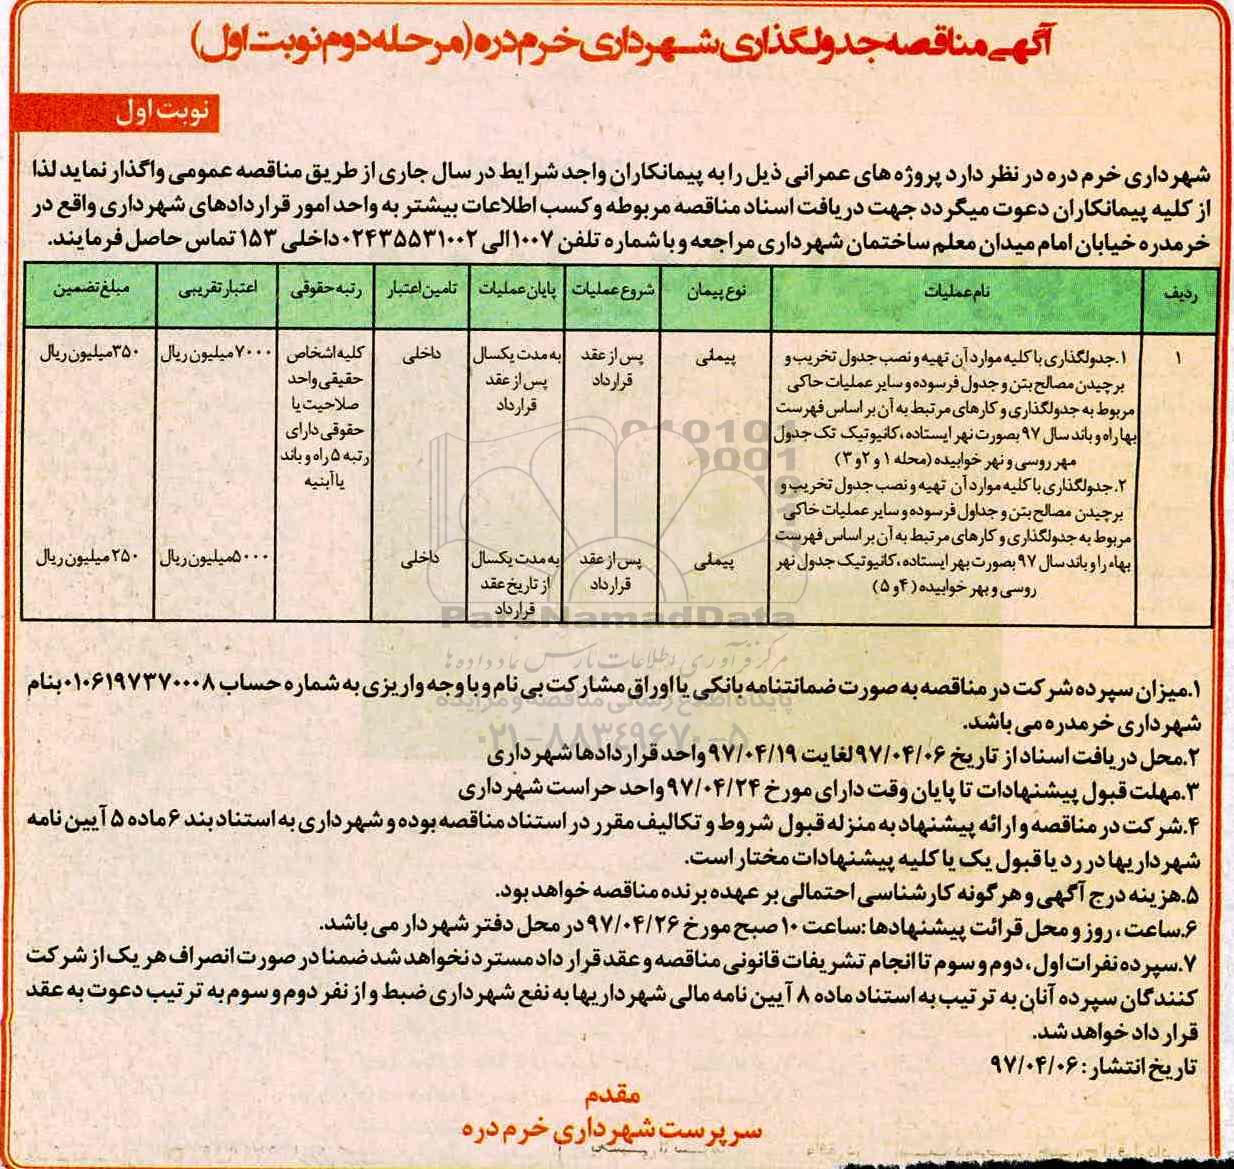 آگهی مناقصه جدولگذاری شهرداری خرم دره (مرحله دوم نوبت اول)
نوبت اول
شهرداری خرم دره در نظر دارد پروژه های عمرانی ذیل را به پیمانکاران واجد شرایط در سال جاری از طریق مناقصه عمومی واگذار نماید لذا
از کلیه پیمانکاران دعوت میگردد جهت دریافت اسناد مناقصه مربوطه و کسب اطلاعات بیشتر به واحد امور قراردادهای شهرداری واقع در
خرمدره خیابان امام میدان معلم ساختمان شهرداری مراجعه و با شماره تلفن ۱۰۰۷ الی ۰۲۴۳۵۵۳۱۰۰۲ داخلی ۱۵۳ تماس حاصل فرمایند.
ردیف نام عملیات نوع پیمان شروع عملیات پایان عملیات تامین اعتبار رتبه حقوقی اعتبار تقریبی مبلغ تضمین
۱
۱.جدولگذاری با کلیه موارد آن تهیه و نصب جدول تخریب و
برچیدن مصالح بتن و جدول فرسوده و سایر عملیات حاکی
مربوط به جدولگذاری و کارهای مرتبط به آن بر اساس فهرست
بها راه و باند سال ۹۷ بصورت نهر ایستاده ،کانیوتیک تک جدول
مهر روسی و نهر خوابیده (محله ۱ و ۲ و ۳)
پیمانی
پس از عقد
قرارداد
به مدت یکسال
پس از عقد
قرارداد
داخلی
کلیه اشخاص
حقیقی واحد
صلاحیت یا
حقوقی دارای
رتبه ۵ راه و باند
یا آبنیه
۷۰۰۰ میلیون ریال
۳۵۰ میلیون ریال
۲.جدولگذاری با کلیه موارد آن تهیه و نصب جدول تخریب و
برچیدن مصالح بتن و جداول فرسوده و سایر عملیات خاکی
مربوط به جدولگذاری و کارهای مرتبط به آن بر اساس فهرست
بهاء را و باند سال ۹۷ بصورت بهر ایستاده ،کانیوتیک جدول نهر
روسی و بهر خوابیده (۴ و ۵)
پیمانی
پس از عقد
قرارداد
به مدت یکسال
از تاریخ عقد
قرارداد
داخلی
۵۰۰۰ میلیون ریال
۲۵۰ میلیون ریال
010101
0001
ParsNamadData
مرکز فرآوری اطلاعات پارس نماد داده ها
پایگاه اطلاع رسانی مناقصه و مزایده
۰۲۱-۸۸۳۴۹۶۷۰-۵
۱.میزان سپرده شرکت در مناقصه به صورت ضمانتنامه بانکی یا اوراق مشارکت بی نام و با وجه واریزی به شماره حساب ۰۱۰۶۱۹۷۳۷۰۰۰۸ بنام
شهرداری خرمدره می باشد.
۲.محل دریافت اسناد از تاریخ ۹۷/۰۴/۰۶ لغایت ۹۷/۰۴/۱۹ واحد قراردادها شهرداری
۳.مهلت قبول پیشنهادات تا پایان وقت دارای مورخ ۹۷/۰۴/۲۴ واحد حراست شهرداری
۴.شرکت در مناقصه و ارائه پیشنهاد به منزله قبول شروط و تکالیف مقرر در استناد مناقصه بوده و شهرداری به استناد بند ۶ ماده ۵ آیین نامه
شهرداریها در رد یا قبول یک یا کلیه پیشنهادات مختار است.
۵.هزینه درج آگهی و هر گونه کارشناسی احتمالی بر عهده برنده مناقصه خواهد بود.
۶.ساعت ، روز و محل قرائت پیشنهادها :ساعت ۱۰ صبح مورخ ۹۷/۰۴/۲۶ در محل دفتر شهردار می باشد.
۷.سپرده نفرات اول ، دوم و سوم تا انجام تشریفات قانونی مناقصه و عقد قرار داد مسترد نخواهد شد ضمنا در صورت انصراف هر یک از شرکت
کنندگان سپرده آنان به ترتیب به استناد ماده ۸ آیین نامه مالی شهرداریها به نفع شهرداری ضبط و از نفر دوم و سوم به ترتیب دعوت به عقد
قرار داد خواهد شد.
تاریخ انتشار: ۹۷/۰۴/۰۶
مقدم
سرپرست شهرداری خرم دره